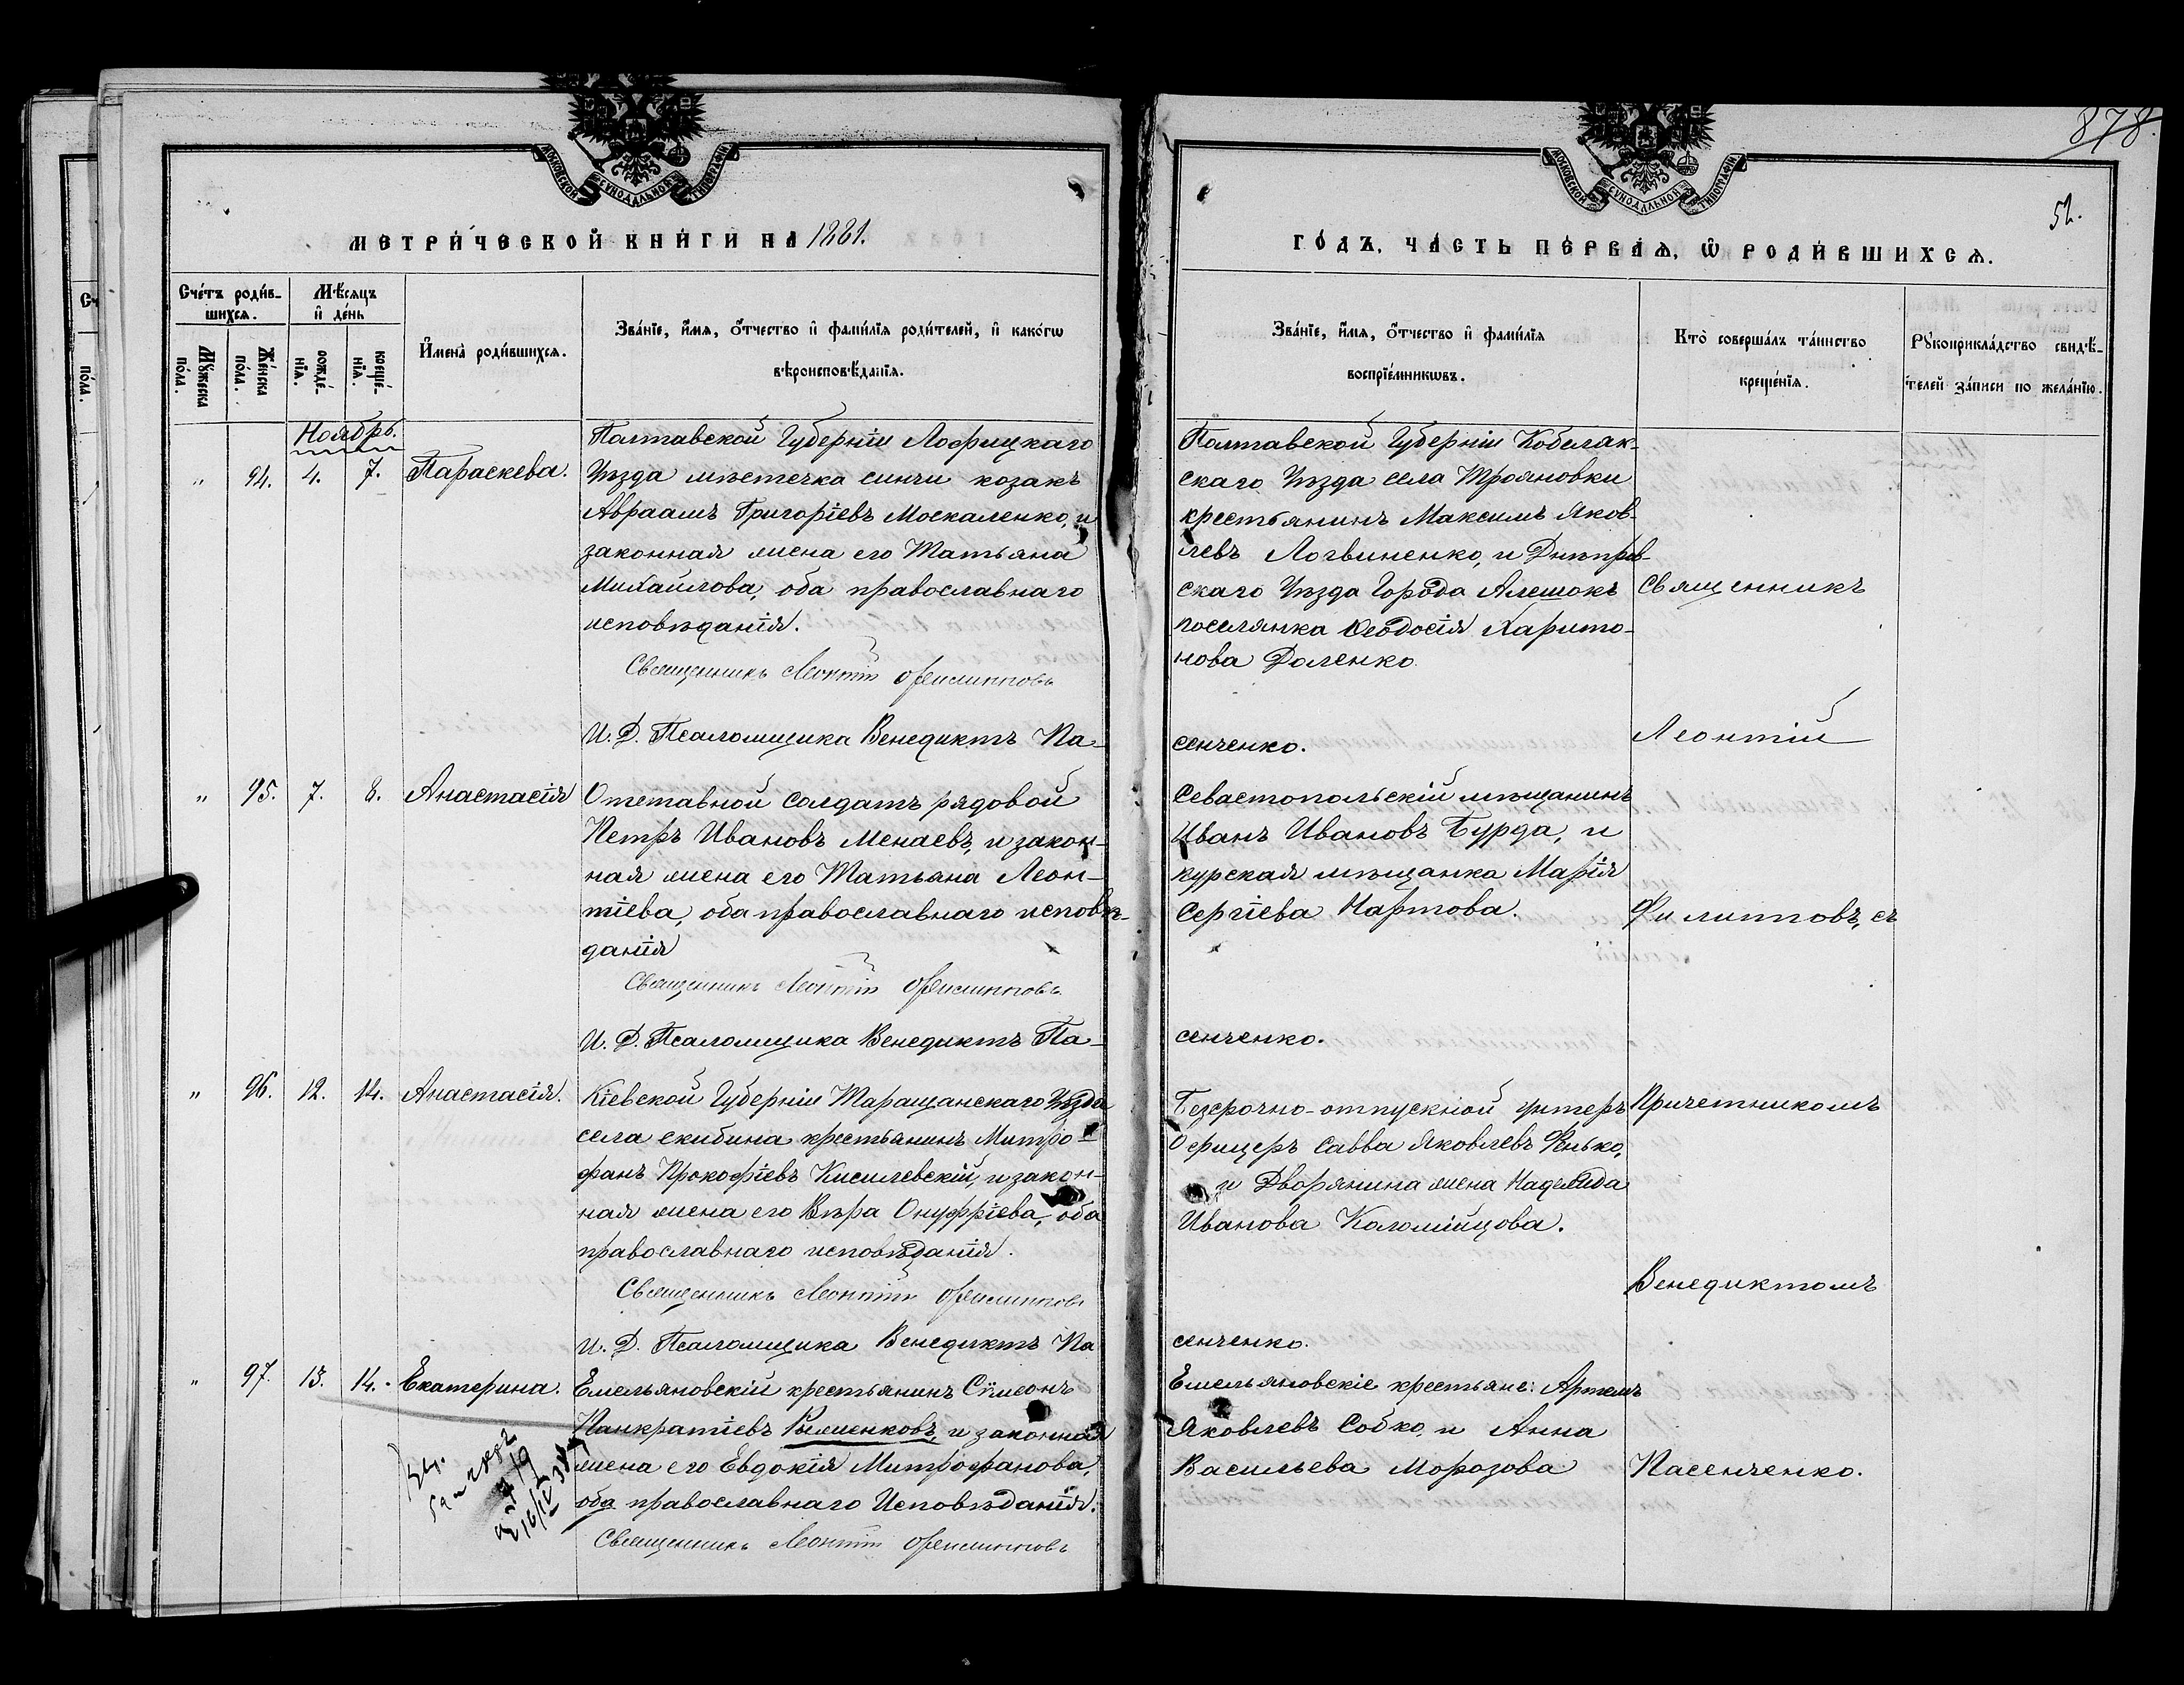 878
52.
МОСКОВСКОЙ СУНОДАЛЬНОЙ ТИПОГРАФIИ
МОСКОВСКОЙ СУНОДАЛЬНОЙ ТИПОГРАФIИ
МЕТРИ́ЧЕСКОЙ КНИ́ГИ НА 1881.
ГО́ДЪ. ЧА́СТЬ ПЕ́РВАѦ, Ѡ РОДИ́ВШИХСѦ.
Сче́тъ роди́в-
шихсѧ.
Мѣ́сѧцъ
и҆ де́нь
Мꙋ́жеска
по́ла.
Же́нска
по́ла.
рожде́-
нїѧ.
креще́-
нїѧ.
И҆мена̀ роди́вшихсѧ.
Зва́нїе, и҆́мѧ, ѻ҆́тчество и҆ фами́лїѧ роди́телей, и҆ како́гѡ
вѣроисповѣ́данїѧ.
Зва́нїе, и҆́мѧ, ѻ҆́тчество и҆ фами́лїѧ
воспрїе́мникѡвъ.
Кто̀ соверша́лъ та́инство
креще́нїѧ.
Рꙋкоприкла́дство свидѣ́-
телей за́писи по жела́нїю.
Ноябрь.
" 94. 4. 7. Параскева.
Полтавской Губерніи Лофицкаго
Уѣзда мѣстечка синчи козакъ
Авраамъ Григоріевъ Москаленко, и
законная жена его Татьяна
Михайлова, оба православнаго
исповѣданія.
Священникъ Леонтій Филипповъ
И. Д. Псаломщика Венедиктъ Па-
сенченко.
Полтавской Губерніи Кобеляк-
скаго Уѣзда села Трояновки
крестьянинъ Максимъ Яков-
левъ Логвиненко, и Днѣпров-
скаго Уѣзда Города Алешокъ
поселянка Ѳеодосія Харито-
нова Доленко.
Священникъ
Леонтій
Филипповъ, съ
Причетникомъ
Венедиктомъ
Пасенченко.
" 95. 7. 8. Анастасія
Отставной солдатъ рядовой
Петръ Ивановъ Менаевъ, и закон-
ная жена его Татьяна Леон-
тіева, оба православнаго исповѣ-
данія
Священникъ Леонтій Филипповъ
И. Д. Псаломщика Венедиктъ Па-
сенченко.
Севастопольскій мѣщанинъ
Иванъ Ивановъ Бурда, и
курская мѣщанка Марія
Сергіева Нартова.
" 96. 12. 14. Анастасія.
Кіевской Губерніи Таращанскаго Уѣзда
села скибина крестьянинъ Митро-
фанъ Прокофіевъ Кисилевскій, и закон-
ная жена его Вѣра Онуфріева, оба
православнаго исповѣданія.
Священникъ Леонтій Филипповъ
И. Д. Псаломщика Венедиктъ Па
сенченко.
Безсрочно-отпускной унтеръ
Офицеръ Савва Яковлевъ Фенько,
и Дворянина жена Надежда
Иванова Коломійцова.
" 97. 13. 14. Екатерина.
Емельяновскій крестьянинъ Сѵмеонъ
Панкратіевъ Рыженковъ, и законная
жена его Евдокія Митрофанова,
оба православнаго Исповѣданія.
Священникъ Леонтій Филипповъ
Емельяновскіе крестьяне: Артемъ
Яковлевъ Собко, и Анна
Васильева Морозова